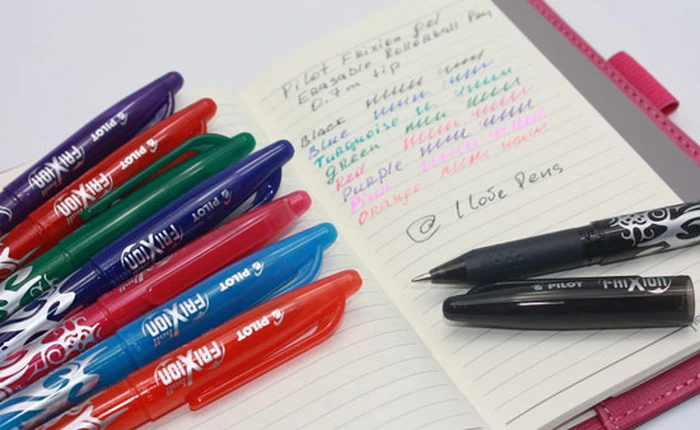 Pilot Frixion gel
Erasable Rollerball Pen
0.7 m tip
Black
Blue
Turquoise
Green
Red
Purple
Pink
Orange
@ I Love Pens
PILOT
FRIXION
PILOT
FRIXION
PILOT
FRIXION
PILOT
FRIXION
PILOT
FRIXION
PILOT
FRIXION
ball
PILOT FRIXION